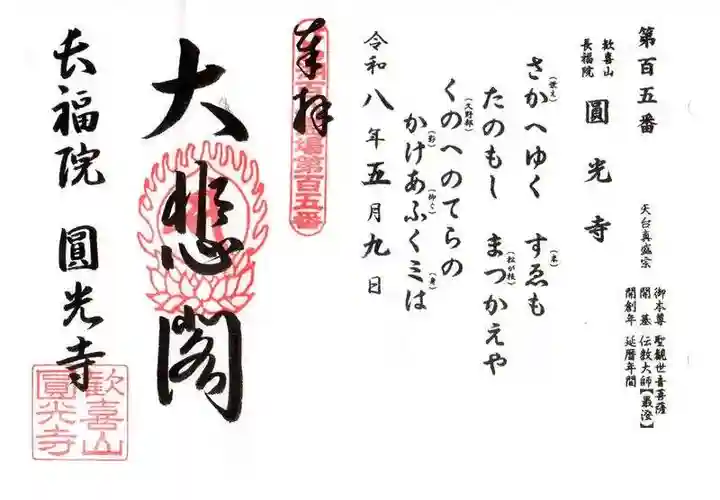 第百五番
歓喜山
長福院
圓光寺
天台真盛宗
御本尊 聖観世音菩薩
開基 伝教大師【最澄】
開創年 延暦年間
さかへゆく(栄え) すゑも(末)
たのもし まつかえや(松が枝)
くのへのてらの(久野部)
かけあふくミは(影)(仰ぐ)(身)
令和八年五月九日
奉拝
百
場第百五番
大悲閣
長福院 圓光寺
歓喜山
圓光寺